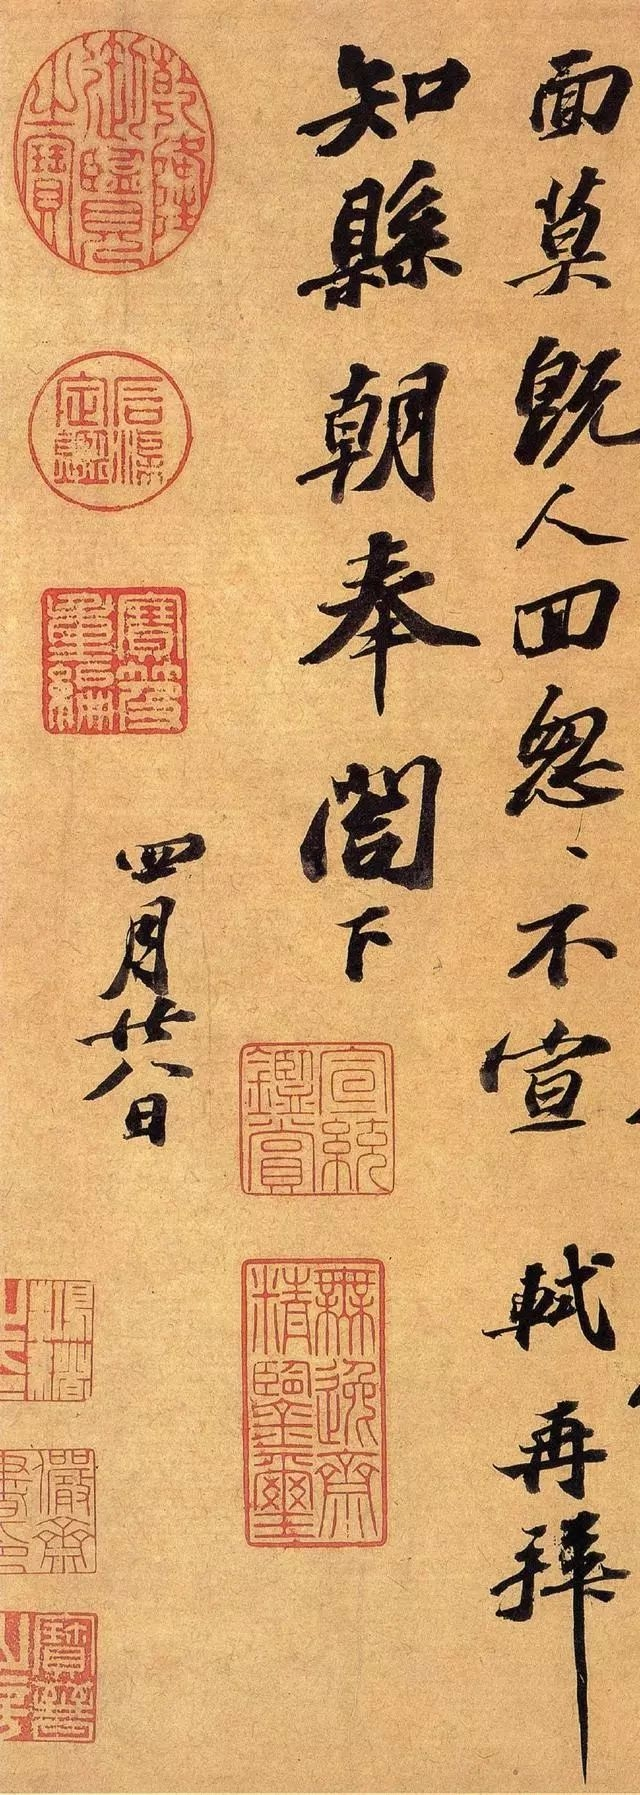 面莫既人回怱、不宣 軾再拜
知縣朝奉閤下
宣統鑑賞
無逸齋精鑒璽
四月廿八日
乾隆御覽之寶
石渠定鑑
寶笈重編
儼齋